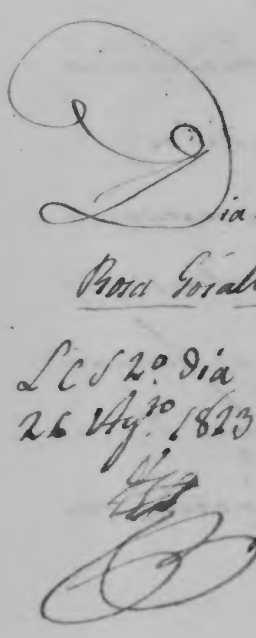 Dia
Rosa Goxall
L C S 2º dia
26 Agᵗᵒ 1823